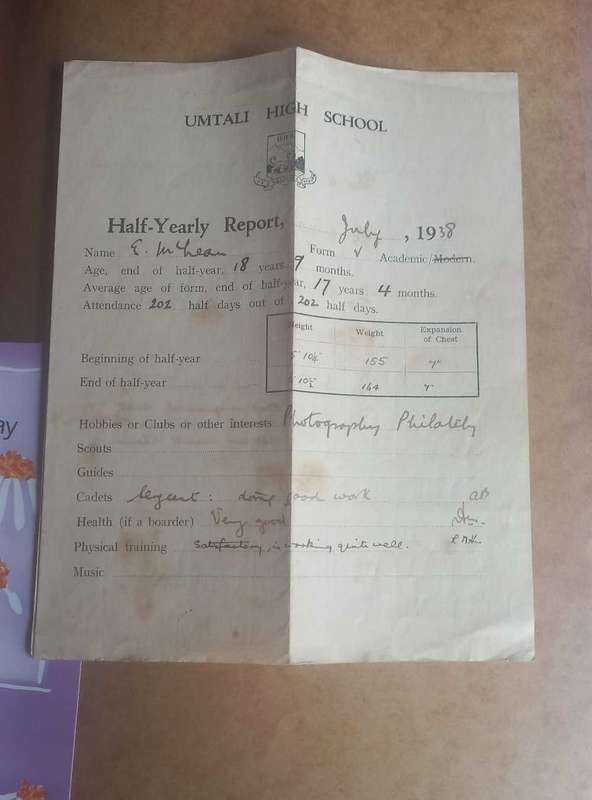 UMTALI HIGH SCHOOL
Half-Yearly Report, July, 1938
Name E. McLean Form V Academic/Modern.
Age, end of half-year, 18 years 9 months.
Average age of form, end of half-year, 17 years 4 months.
Attendance 202 half days out of 202 half days.
Height Weight Expansion of Chest
Beginning of half-year 155
End of half-year 164
Hobbies or Clubs or other interests Photography Philately
Scouts
Guides
Cadets Sergeant: doing good work
Health (if a boarder) Very good
Physical training Satisfactory, is working quite well.
Music
ay